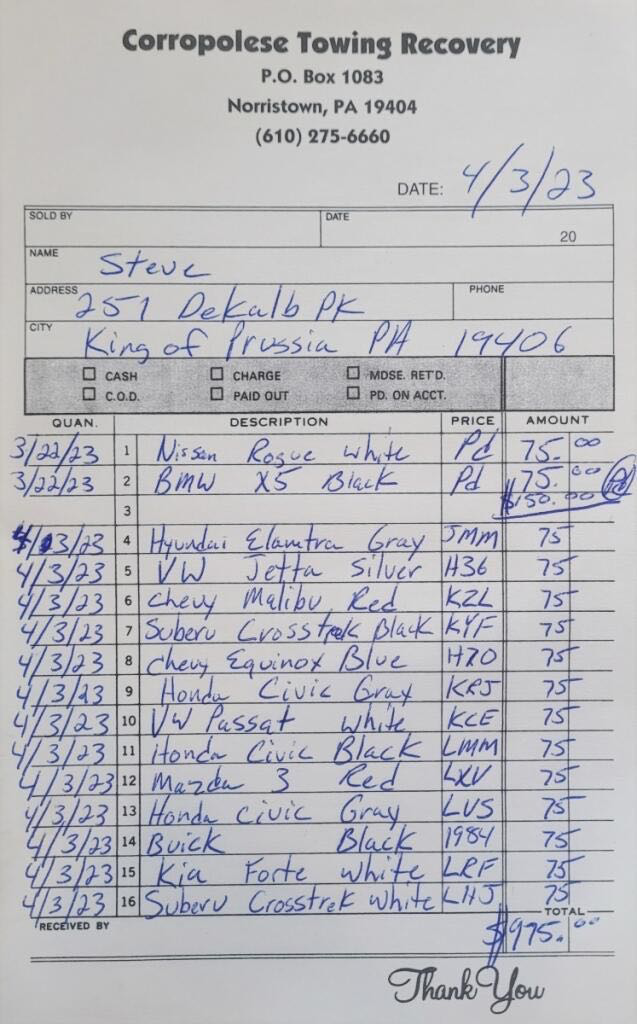 Corropolese Towing Recovery
P.O. Box 1083
Norristown, PA 19404
(610) 275-6660
DATE: 4/3/23
SOLD BY DATE 20
NAME Steve
ADDRESS 251 DeKalb PK PHONE
CITY King of Prussia PA 19406
CASH CHARGE MDSE. RET'D.
C.O.D. PAID OUT PD. ON ACCT.
QUAN. DESCRIPTION PRICE AMOUNT
3/22/23 1 Nissan Rogue white Pd 75.00
3/22/23 2 BMW X5 Black Pd 75.00
3 $150.00 Pd
4/3/23 4 Hyundai Elamtra Gray JMM 75
4/3/23 5 VW Jetta Silver H36 75
4/3/23 6 Chevy Malibu Red KZL 75
4/3/23 7 Suberu Crosstrek Black KYF 75
4/3/23 8 Chevy Equinox Blue H70 75
4/3/23 9 Honda Civic Gray KRJ 75
4/3/23 10 VW Passat white KCE 75
4/3/23 11 Honda Civic Black LMM 75
4/3/23 12 Mazda 3 Red LXV 75
4/3/23 13 Honda Civic Gray LVS 75
4/3/23 14 Buick Black 1984 75
4/3/23 15 Kia Forte white LRF 75
4/3/23 16 Suberu Crosstrek white LHJ 75
RECEIVED BY TOTAL $975.00
Thank You